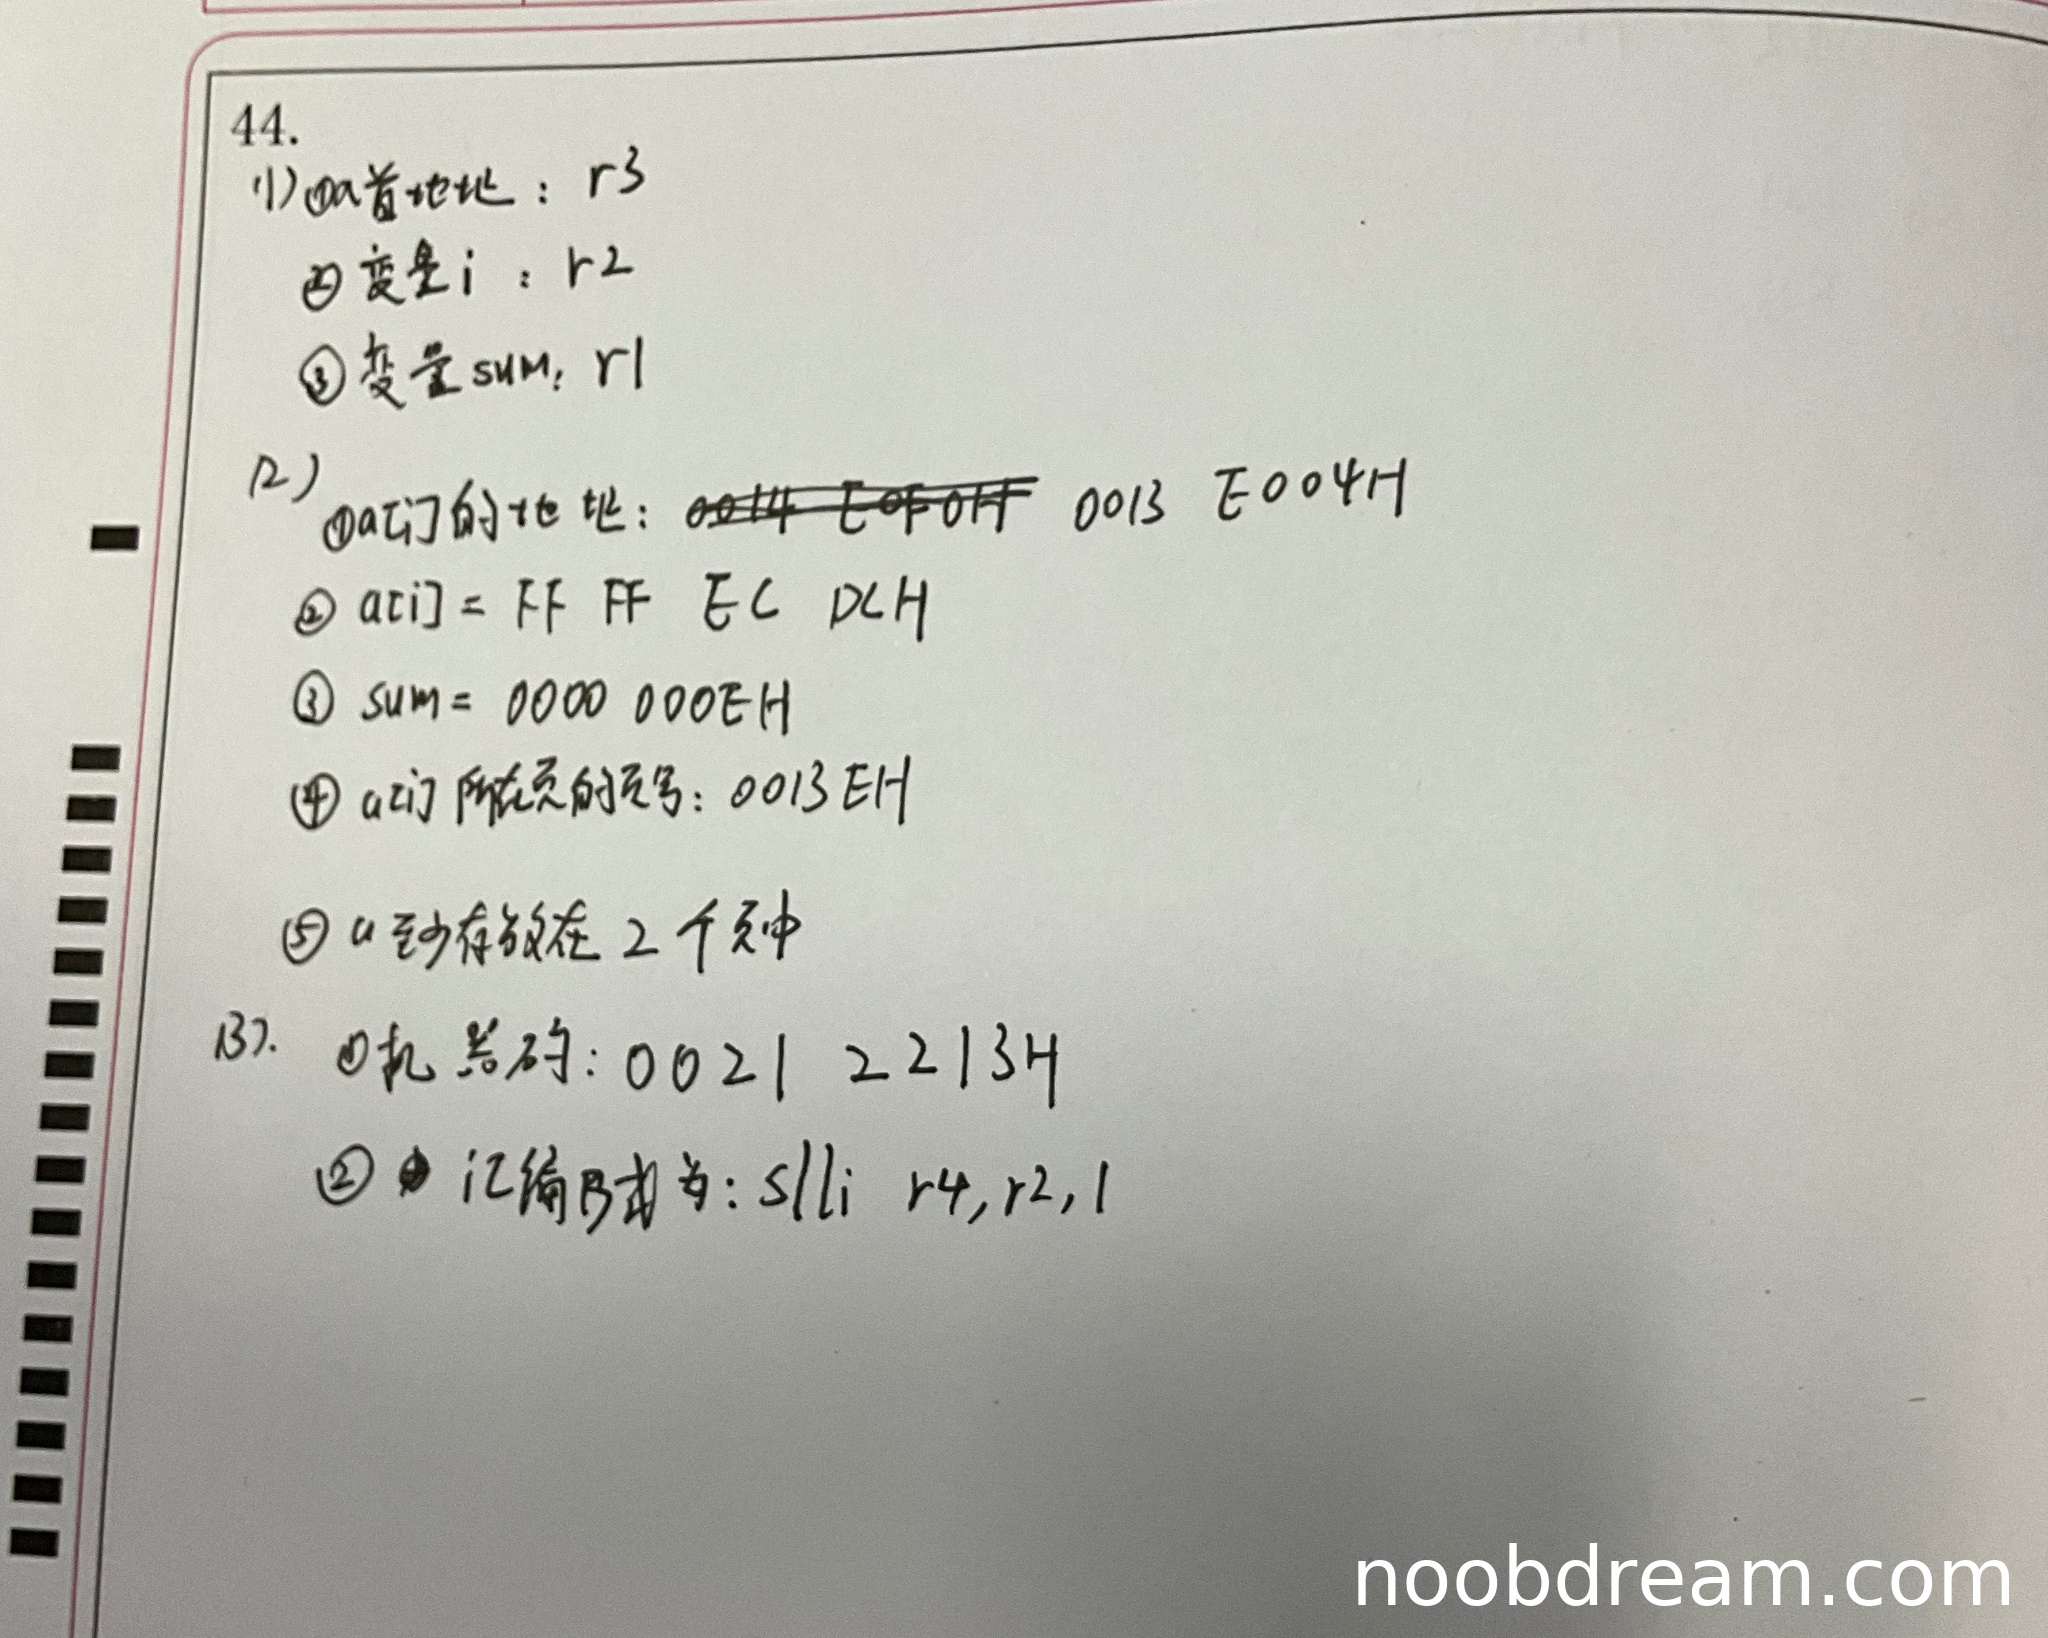 44.
(1) ①a首地址: r3
② 变量i : r2
③ 变量sum: r1
(2)
①a[i]的地址: 0014 E0F0H 0013 E004H
② a[i] = FF FF EC DCH
③ sum = 0000 000EH
④ a[i]所在页的页号: 0013EH
⑤ a至少存放在2个页中
(3). ①机器码: 0021 2213H
② 汇编形式为: slli r4, r2, 1
noobdream.com